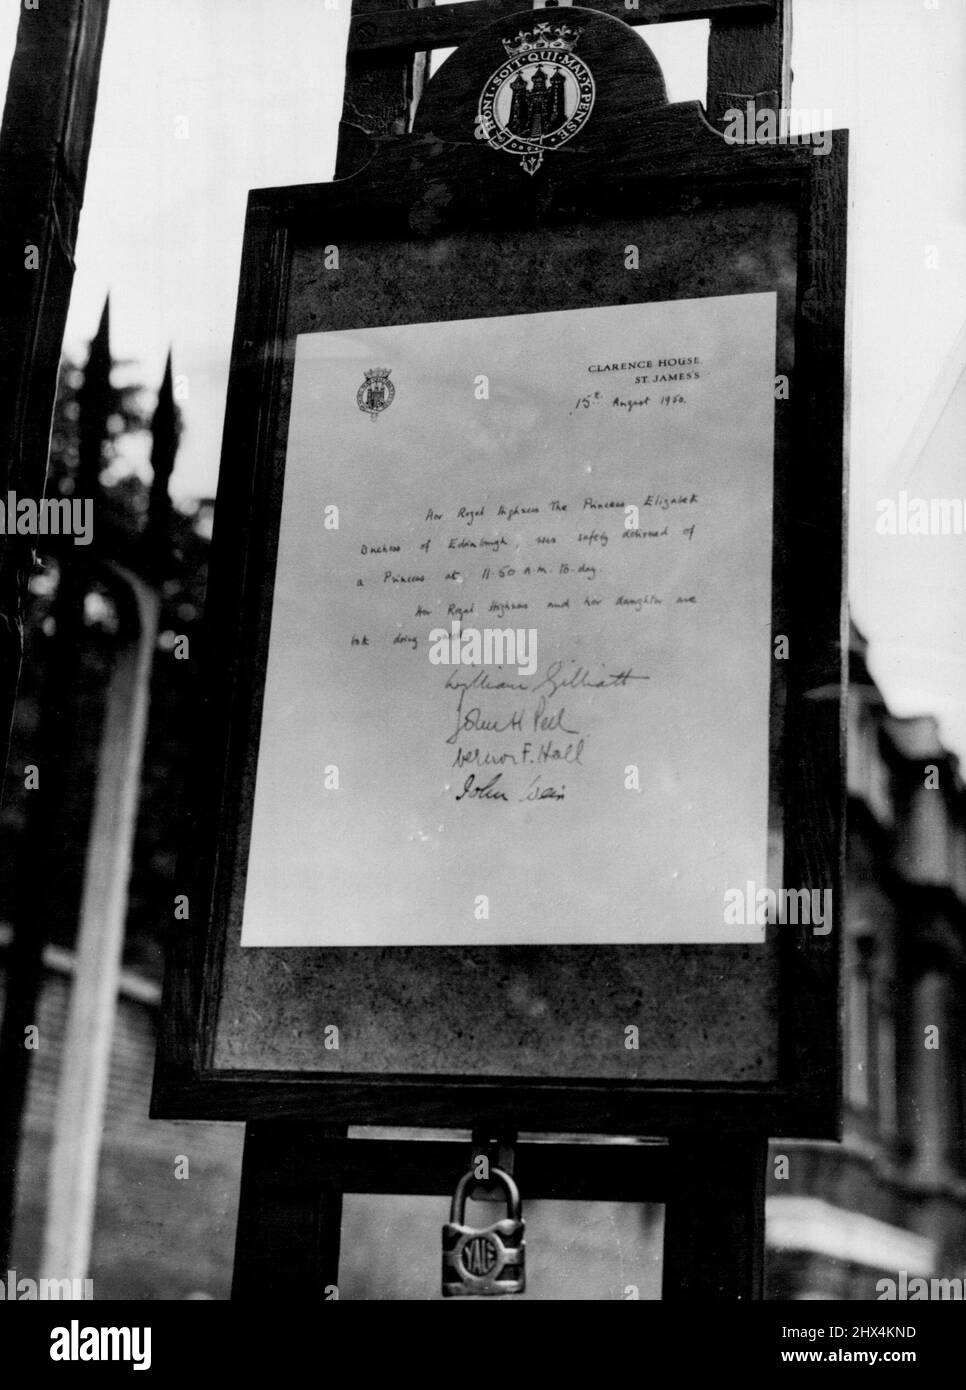 HONI · SOIT · QUI · MAL · Y · PENSE
CLARENCE HOUSE.
ST. JAMES'S
15th August 1950.
Her Royal Highness The Princess Elizabeth
Duchess of Edinburgh, was safely delivered of
a Princess at 11.50 a.m. to-day.
Her Royal Highness and her daughter are
both doing well.
William Gilliatt
John H Peel
Vernon F. Hall
John Weir
YALE
alamy
alamy
Image ID: 2HX4KND
www.alamy.com